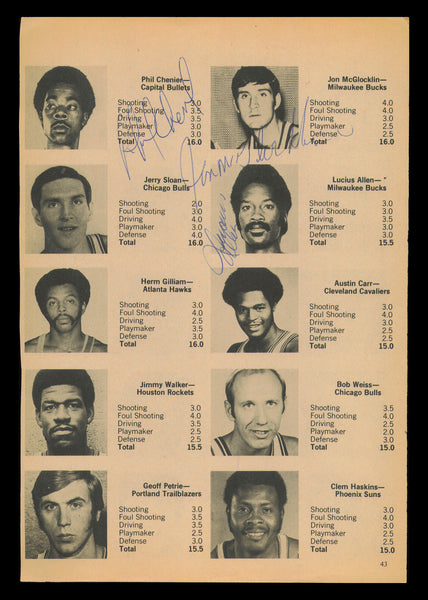 Phil Chenier—
Capital Bullets
Shooting 3.0
Foul Shooting 3.0
Driving 3.5
Playmaker 3.0
Defense
Total 16.0
Jon McGlocklin—
Milwaukee Bucks
Shooting 4.0
Foul Shooting 4.0
Driving 3.0
Playmaker 2.5
Defense 2.5
Total 16.0
Jerry Sloan—
Chicago Bulls
Shooting 2.0
Foul Shooting 3.0
Driving 4.0
Playmaker 3.0
Defense 4.0
Total 16.0
Lucius Allen—
Milwaukee Bucks
Shooting 3.0
Foul Shooting 3.0
Driving 3.5
Playmaker 3.0
Defense 3.0
Total 15.5
Herm Gilliam—
Atlanta Hawks
Shooting 3.0
Foul Shooting 4.0
Driving 2.5
Playmaker 3.5
Defense 3.0
Total 16.0
Austin Carr—
Cleveland Cavaliers
Shooting 3.0
Foul Shooting 4.0
Driving 3.0
Playmaker 2.5
Defense 2.5
Total 15.0
Jimmy Walker—
Houston Rockets
Shooting 3.0
Foul Shooting 4.0
Driving 3.5
Playmaker 2.5
Defense 2.5
Total 15.5
Bob Weiss—
Chicago Bulls
Shooting 3.5
Foul Shooting 4.0
Driving 2.5
Playmaker 2.0
Defense 3.0
Total 15.0
Geoff Petrie—
Portland Trailblazers
Shooting 3.5
Foul Shooting 3.5
Driving 3.5
Playmaker 2.5
Defense 2.5
Total 15.5
Clem Haskins—
Phoenix Suns
Shooting 3.0
Foul Shooting 4.0
Driving 3.0
Playmaker 2.5
Defense 2.5
Total 15.0
43